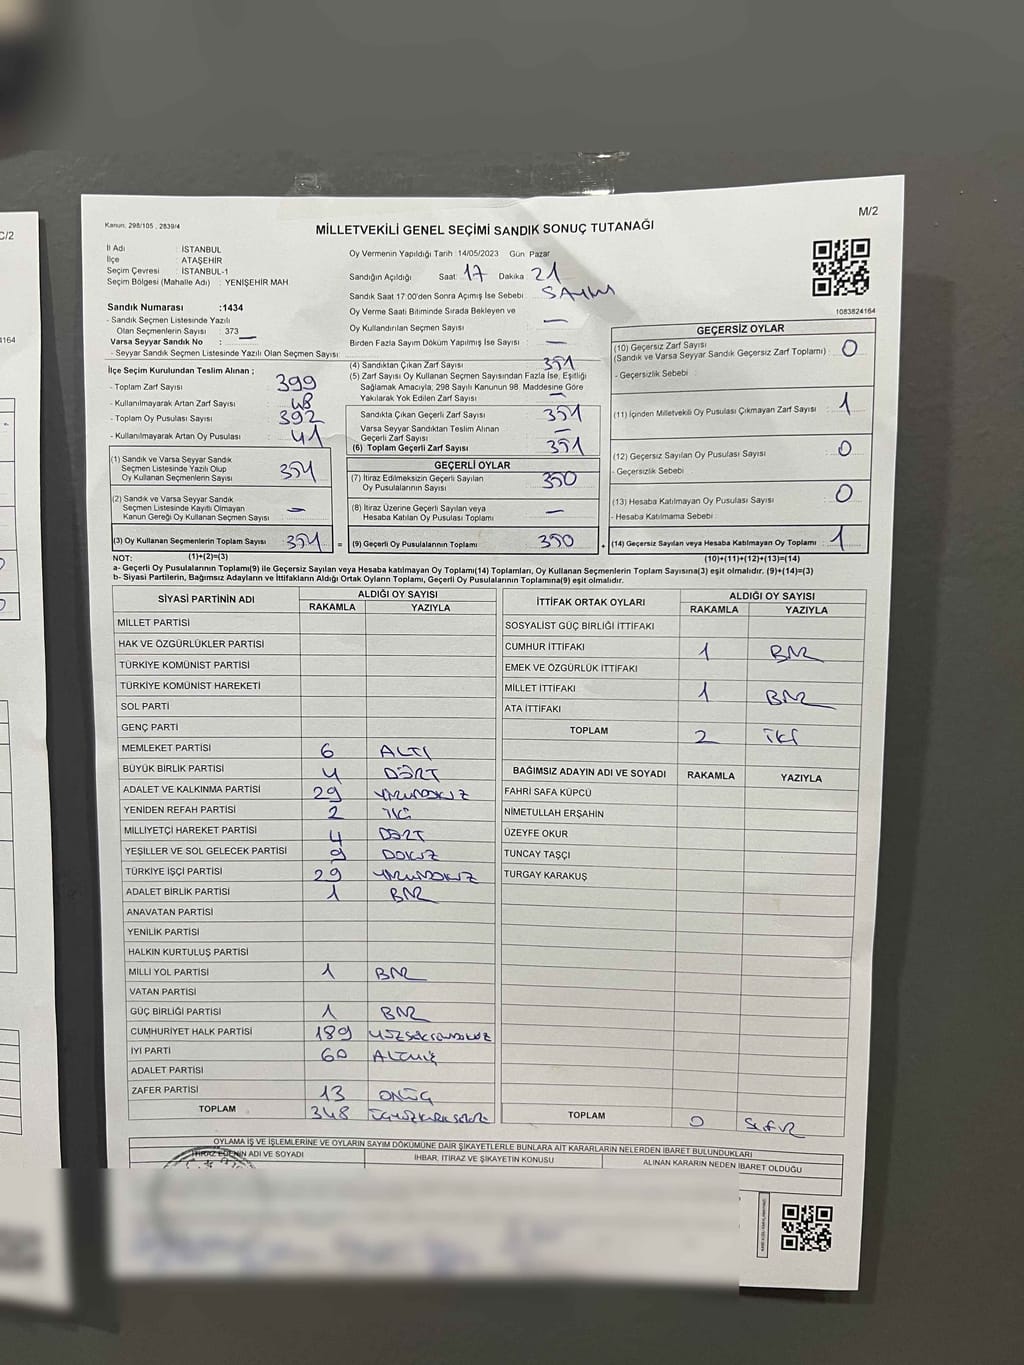 C/2
4164
M/2
Kanun: 298/105 , 2839/4
MİLLETVEKİLİ GENEL SEÇİMİ SANDIK SONUÇ TUTANAĞI
İl Adı : İSTANBUL
İlçe : ATAŞEHİR
Seçim Çevresi : İSTANBUL-1
Seçim Bölgesi (Mahalle Adı) : YENİŞEHİR MAH
Sandık Numarası :1434
- Sandık Seçmen Listesinde Yazılı
Olan Seçmenlerin Sayısı : 373
Varsa Seyyar Sandık No : —
- Seyyar Sandık Seçmen Listesinde Yazılı Olan Seçmen Sayısı:
İlçe Seçim Kurulundan Teslim Alınan ;
- Toplam Zarf Sayısı : 399
- Kullanılmayarak Artan Zarf Sayısı : 48
- Toplam Oy Pusulası Sayısı : 392
- Kullanılmayarak Artan Oy Pusulası : 41
(1) Sandık ve Varsa Seyyar Sandık
Seçmen Listesinde Yazılı Olup
Oy Kullanan Seçmenlerin Sayısı 351
(2) Sandık ve Varsa Seyyar Sandık
Seçmen Listesinde Kayıtlı Olmayan
Kanun Gereği Oy Kullanan Seçmen Sayısı —
(3) Oy Kullanan Seçmenlerin Toplam Sayısı 351 =
(1)+(2)=(3)
Oy Vermenin Yapıldığı Tarih :14/05/2023 Gün Pazar
Sandığın Açıldığı Saat: 17 Dakika 21
Sandık Saat 17:00'den Sonra Açımış İse Sebebi SAYIM
Oy Verme Saati Bitiminde Sırada Bekleyen ve
Oy Kullandırılan Seçmen Sayısı —
Birden Fazla Sayım Döküm Yapılmış İse Sayısı : —
(4) Sandıktan Çıkan Zarf Sayısı 351
(5) Zarf Sayısı Oy Kullanan Seçmen Sayısından Fazla İse, Eşitliği
Sağlamak Amacıyla; 298 Sayılı Kanunun 98. Maddesine Göre
Yakılarak Yok Edilen Zarf Sayısı —
Sandıkta Çıkan Geçerli Zarf Sayısı 351
Varsa Seyyar Sandıktan Teslim Alınan
Geçerli Zarf Sayısı —
(6) Toplam Geçerli Zarf Sayısı 351
GEÇERLİ OYLAR
(7) İtiraz Edilmeksizin Geçerli Sayılan
Oy Pusulalarının Sayısı 350
(8) İtiraz Üzerine Geçerli Sayılan veya
Hesaba Katılan Oy Pusulası Toplamı —
(9) Geçerli Oy Pusulalarının Toplamı 350 +
1083824164
GEÇERSİZ OYLAR
(10) Geçersiz Zarf Sayısı
(Sandık ve Varsa Seyyar Sandık Geçersiz Zarf Toplamı) : 0
- Geçersizlik Sebebi :
(11) İçinden Milletvekili Oy Pusulası Çıkmayan Zarf Sayısı 1
(12) Geçersiz Sayılan Oy Pusulası Sayısı : 0
- Geçersizlik Sebebi
(13) Hesaba Katılmayan Oy Pusulası Sayısı : 0
- Hesaba Katılmama Sebebi
(14) Geçersiz Sayılan veya Hesaba Katılmayan Oy Toplamı 1
(10)+(11)+(12)+(13)=(14)
NOT:
a- Geçerli Oy Pusulaları Toplamı(9) ile Geçersiz Sayılan veya Hesaba katılmayan Oy Toplamı(14) Toplamları, Oy Kullanan Seçmenlerin Toplam Sayısına(3) eşit olmalıdır. (9)+(14)=(3)
b- Siyasi Partilerin, Bağımsız Adayların ve İttifakların Aldığı Ortak Oyların Toplamı, Geçerli Oy Pusulalarının Toplamına(9) eşit olmalıdır.
SİYASİ PARTİNİN ADI ALDIĞI OY SAYISI
RAKAMLA YAZIYLA
MİLLET PARTİSİ
HAK VE ÖZGÜRLÜKLER PARTİSİ
TÜRKİYE KOMÜNİST PARTİSİ
TÜRKİYE KOMÜNİST HAREKETİ
SOL PARTİ
GENÇ PARTİ
MEMLEKET PARTİSİ 6 ALTI
BÜYÜK BİRLİK PARTİSİ 4 DÖRT
ADALET VE KALKINMA PARTİSİ 29 YİRMİDOKUZ
YENİDEN REFAH PARTİSİ 2 İKİ
MİLLİYETÇİ HAREKET PARTİSİ 4 DÖRT
YEŞİLLER VE SOL GELECEK PARTİSİ 9 DOKUZ
TÜRKİYE İŞÇİ PARTİSİ 29 YİRMİDOKUZ
ADALET BİRLİK PARTİSİ 1 BİR
ANAVATAN PARTİSİ
YENİLİK PARTİSİ
HALKIN KURTULUŞ PARTİSİ
MİLLİ YOL PARTİSİ 1 BİR
VATAN PARTİSİ
GÜÇ BİRLİĞİ PARTİSİ 1 BİR
CUMHURİYET HALK PARTİSİ 189 YÜZSEKSENDOKUZ
İYİ PARTİ 60 ALTMIŞ
ADALET PARTİSİ
ZAFER PARTİSİ 13 ONÜÇ
TOPLAM 348 ÜÇYÜZKIRKSEKİZ
İTTİFAK ORTAK OYLARI ALDIĞI OY SAYISI
RAKAMLA YAZIYLA
SOSYALİST GÜÇ BİRLİĞİ İTTİFAKI
CUMHUR İTTİFAKI 1 BİR
EMEK VE ÖZGÜRLÜK İTTİFAKI
MİLLET İTTİFAKI 1 BİR
ATA İTTİFAKI
TOPLAM 2 İKİ
BAĞIMSIZ ADAYIN ADI VE SOYADI RAKAMLA YAZIYLA
FAHRİ SAFA KÜPCÜ
NİMETULLAH ERŞAHİN
ÜZEYFE OKUR
TUNCAY TAŞÇI
TURGAY KARAKUŞ
TOPLAM 0 SIFIR
OYLAMA İŞ VE İŞLEMLERİNE VE OYLARIN SAYIM DÖKÜMÜNE DAİR ŞİKAYETLERLE BUNLARA AİT KARARLARIN NELERDEN İBARET BULUNDUKLARI
İTİRAZ EDENİN ADI VE SOYADI İHBAR, İTİRAZ VE ŞİKAYETİN KONUSU ALINAN KARARIN NEDEN İBARET OLDUĞU